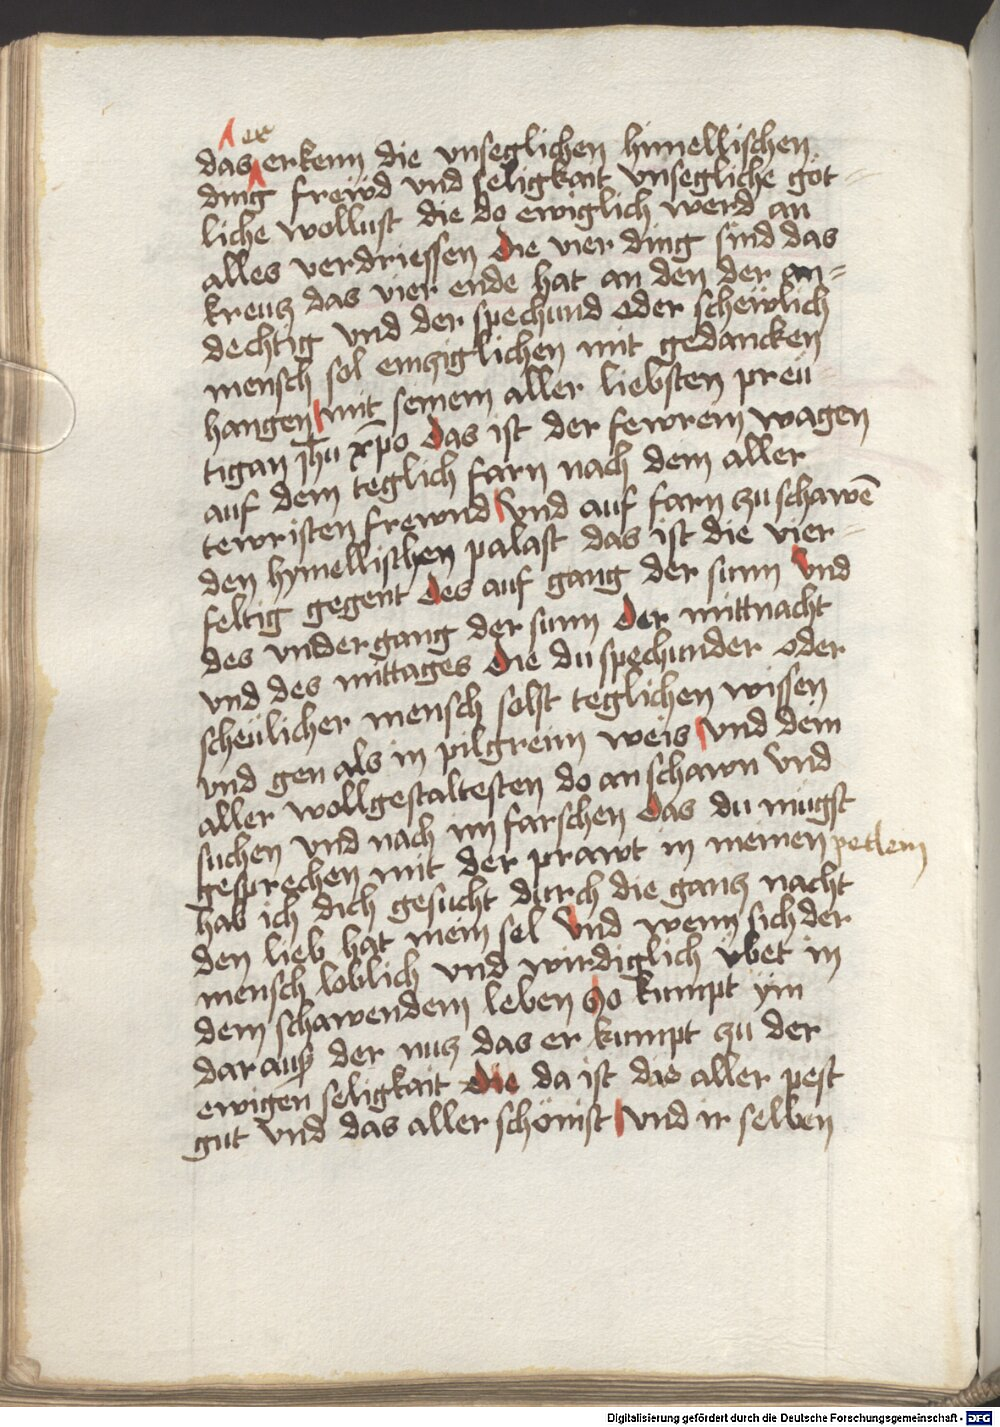 er
das erkenn die vnseglichen himellischen
ding frewd vnd seligkait vnsegliche göt-
liche wollust die do ewiglich werd an
alles verdriessen Die vier ding sind das
kreutz das vier ende hat an den der an=
dechtig vnd der spechund oder schewlich
mensch sol eintziglichen mit gedancken
hangen mit seinem aller liebsten preü
tigan jhu xpo Das ist der fewrein wagen
auf dem teglich farn nach dem aller
tewristen frewnd Vnd auf farn zu schawē
den hymellischen palast das ist die vier-
feltig gegent Des auf gang der sunn Vnd
des vndergang der sunn Der mittnacht
vnd des mittages Die du spechunder oder
scheülicher mensch solst teglichen wissen
vnd gen als in pilgreim weis Vnd dein
aller wollgestaltesten do an schawn vnd
suchen vnd nach im farschen Das du mugst
gesprechen mit der prawt in meinen petlein
hab ich dich gesucht durch die gantz nacht
den lieb hat mein sel Vnd wenn sich der
mensch loblich vnd wirdiglich vbet in
dem schawendem leben So kumpt ÿm
darauß der nutz das er kumpt zu der
ewigen seligkait Die da ist das aller pest
gut vnd das aller schönist Vnd ir selben
Digitalisierung gefördert durch die Deutsche Forschungsgemeinschaft - DFG